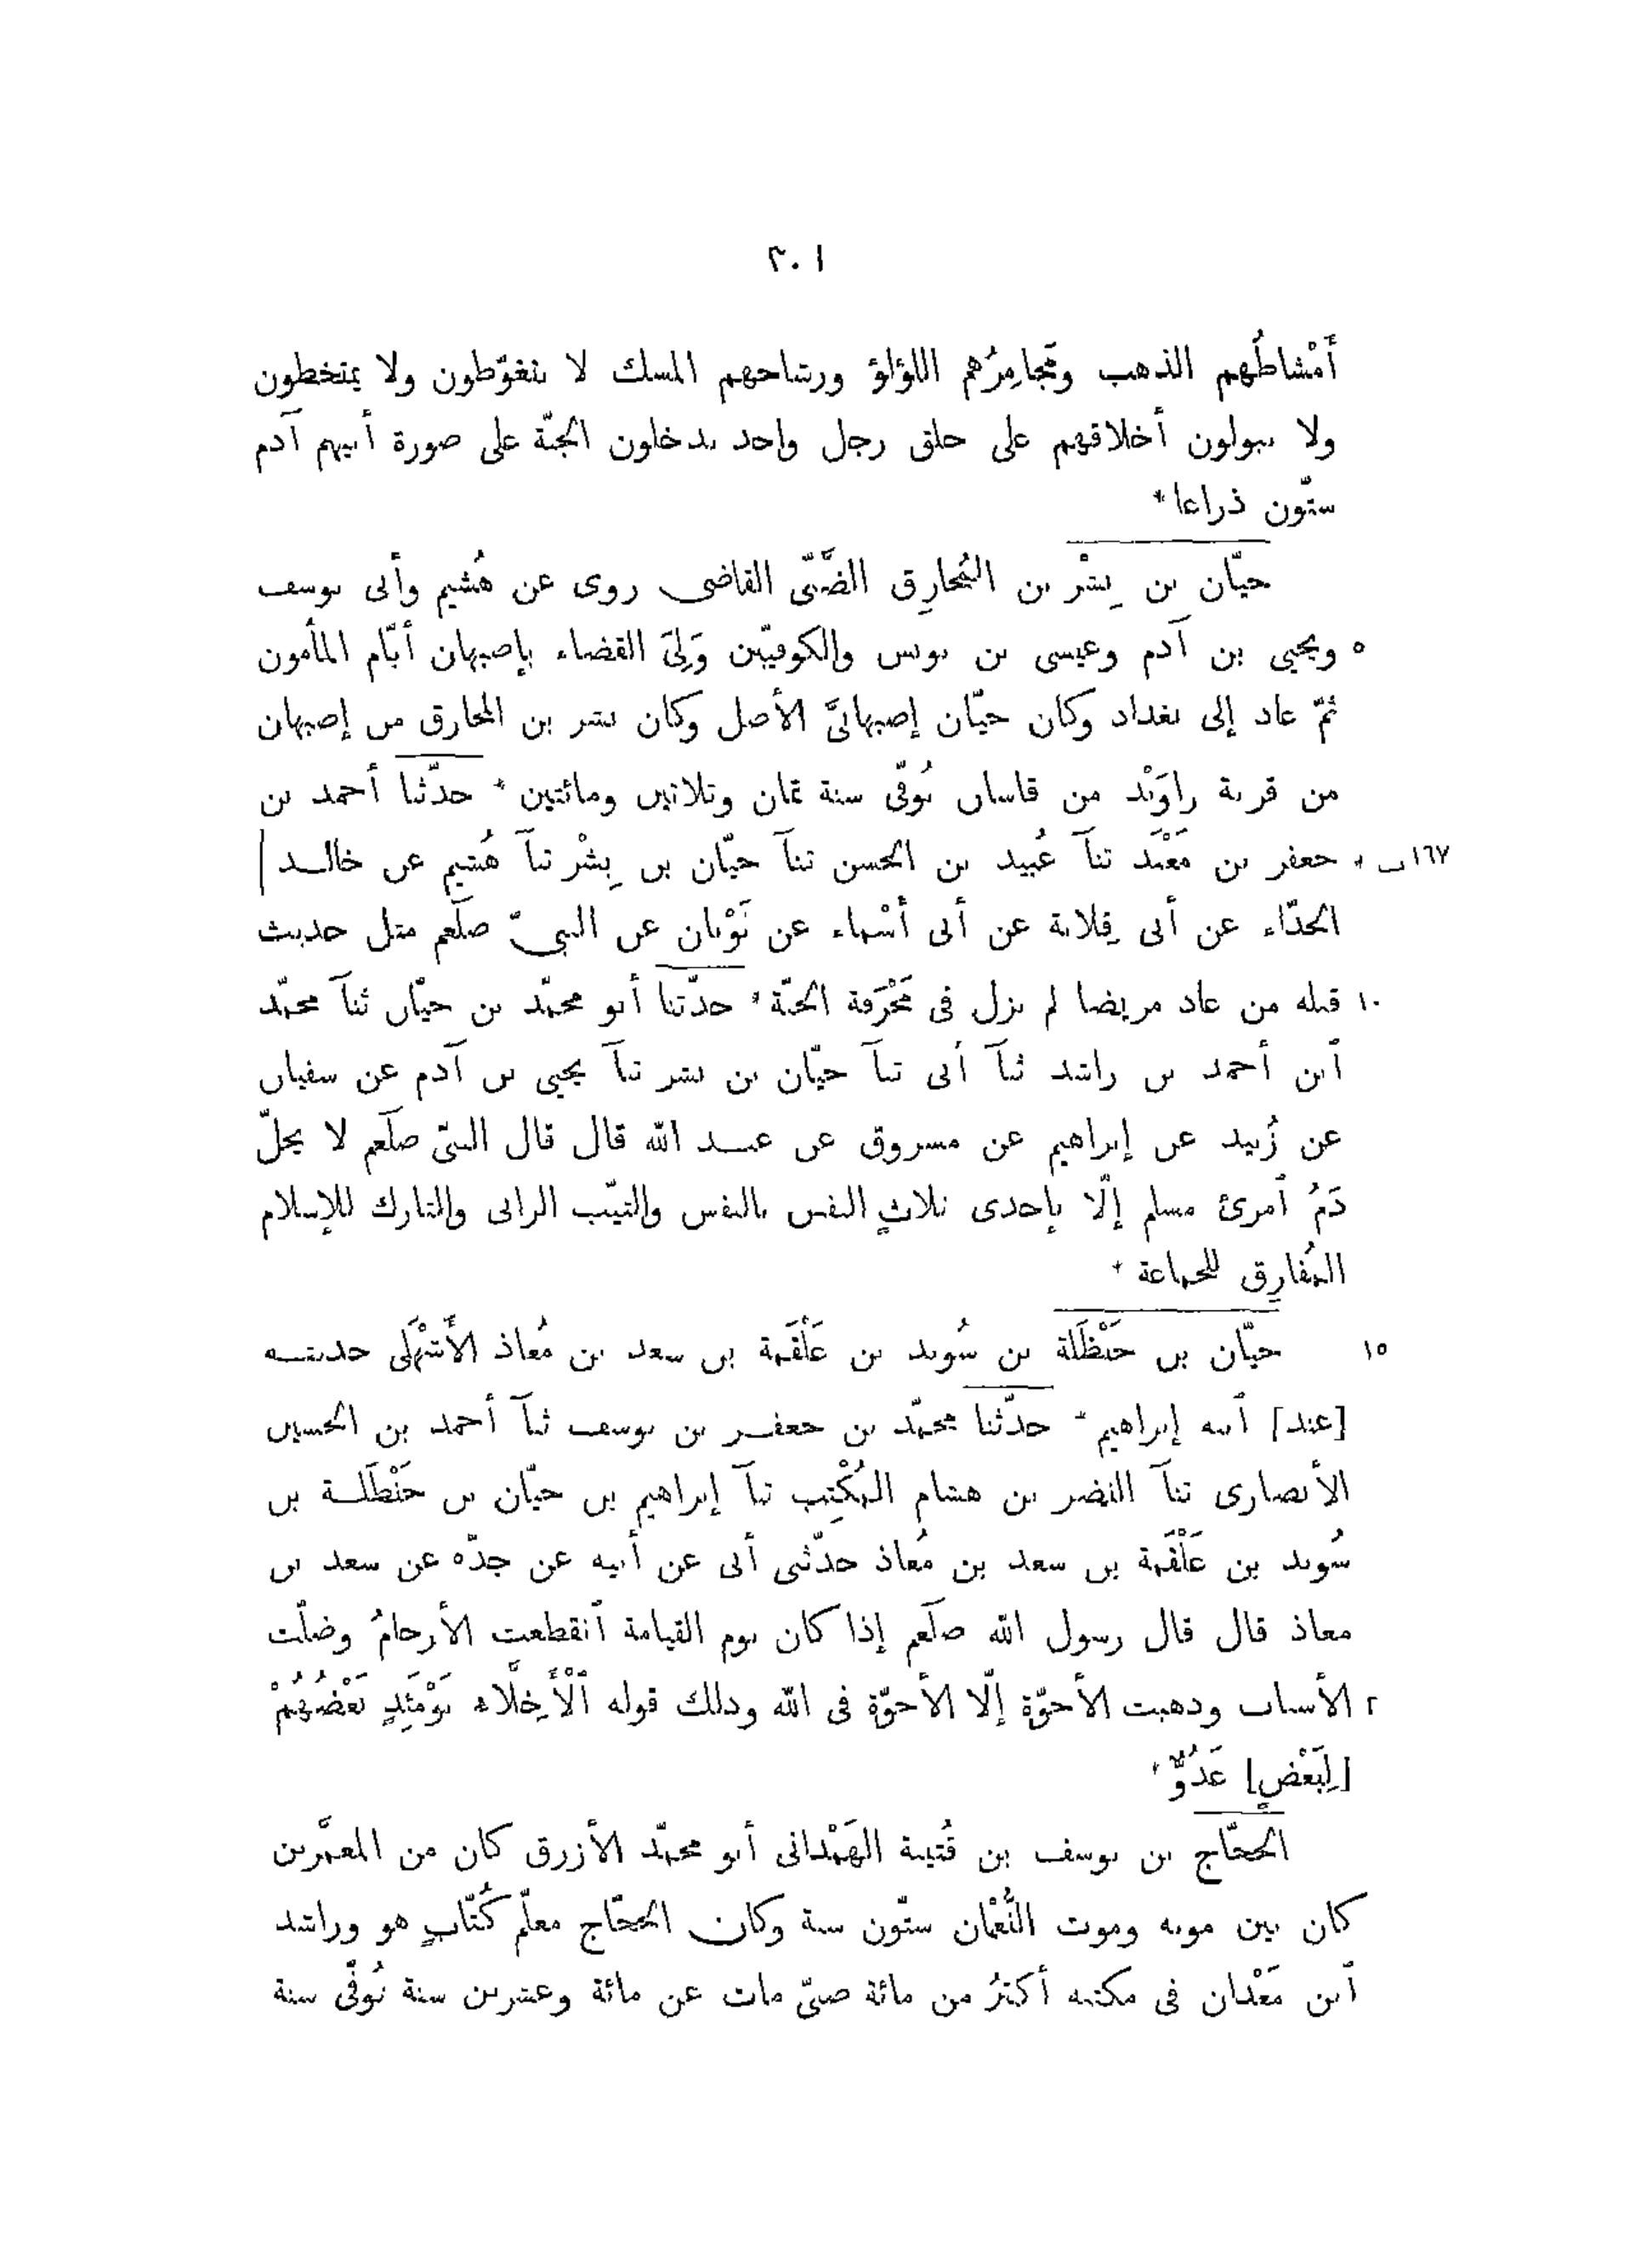 ٣٠١
أَمْشاطُهم الذهب ومَجامِرُهم اللؤلؤ ورشاحهم المسك لا يتغوّطون ولا يمتخطون
ولا يبولون أخلاقهم على خلق رجل واحد يدخلون الجنّة على صورة أبيهم آدم
ستّون ذراعا*
حيّان بن بِشْر بن المُخارِق الضَّبّى القاضى روى عن هُشيم وأبى يوسف
٥ ويحيى بن آدم وعيسى بن يونس والكوفيّين وَلِىَ القضاء بإصبهان أيّام المأمون
ثمّ عاد إلى بغداد وكان حيّان إصبهانىَّ الأصل وكان بشر بن المخارق من إصبهان
من قرية راوَنْد من قاسان تُوفّى سنة ثمان وثلاثين ومائتين * حدّثنا أحمد بن
١٦٧ب * جعفر بن مَعْبَد ثنآ عُبيد بن الحسن ثنآ حيّان بن بِشْر ثنآ هُشيم عن خالد |
الحذّاء عن أبى قِلابة عن أبى أَسْماء عن ثَوْبان عن النبىّ صلّعم مثل حديث
١٠ قبله من عاد مريضا لم يزل فى مَخْرَفة الجنّة * حدّثنا أبو محمّد بن حيّان ثنآ محمّد
ٱبن أحمد بن راشد ثنآ أبى ثنآ حيّان بن بشر ثنآ يحيى بن آدم عن سفيان
عن زُبيد عن إبراهيم عن مسروق عن عبد الله قال قال النبىّ صلّعم لا يحلّ
دَمُ ٱمرئ مسلم إلّا بإحدى ثلاثٍ النفس بالنفس والثيّب الزانى والتارك للإسلام
المُفارِق للجماعة *
١٥ حيّان بن حَنْظَلة بن سُويد بن عَلْقَمة بن سعد بن مُعاذ الأَشْهَلى حديثه
[عند] ٱبنه إبراهيم * حدّثنا محمّد بن جعفر بن يوسف ثنآ أحمد بن الحسين
الأنصارى ثنآ النضر بن هشام المُكْتِب ثنآ إبراهيم بن حيّان بن حَنْظَلة بن
سُويد بن عَلْقَمة بن سعد بن مُعاذ حدّثنى أبى عن أبيه عن جدّه عن سعد بن
معاذ قال قال رسول الله صلّعم إذا كان يوم القيامة ٱنقطعت الأرحامُ وضلّت
٢ الأنساب وذهبت الأخوّة إلّا الأخوّة فى الله وذلك قوله ٱلْأَخِلَّاء يَوْمَئِذٍ بَعْضُهُمْ
[لِبَعْضٍ] عَدُوٌّ *
الحجّاج بن يوسف بن قُتيبة الهَمْدانى أبو محمّد الأزرق كان من المعمَّرين
كان بين موته وموت النُّعْمان ستّون سنة وكان الحجّاج معلّم كُتّابٍ هو وراشد
ٱبن مَعْدان فى مكتبه أكثرُ من مائة صبىّ مات عن مائة وعشرين سنة تُوفّى سنة